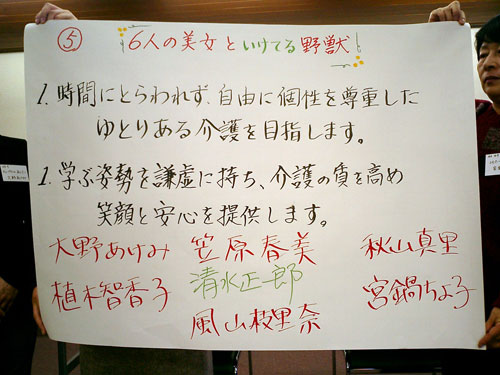 ⑤ 6人の美女といけてる野獣!
1. 時間にとらわれず、自由に個性を尊重した
ゆとりある介護を目指します。
1. 学ぶ姿勢を謙虚に持ち、介護の質を高め
笑顔と安心を提供します。
大野あけみ 笠原春美 秋山真里
植木智香子 清水正一郎 宮鍋ちよ子
風山枝里奈